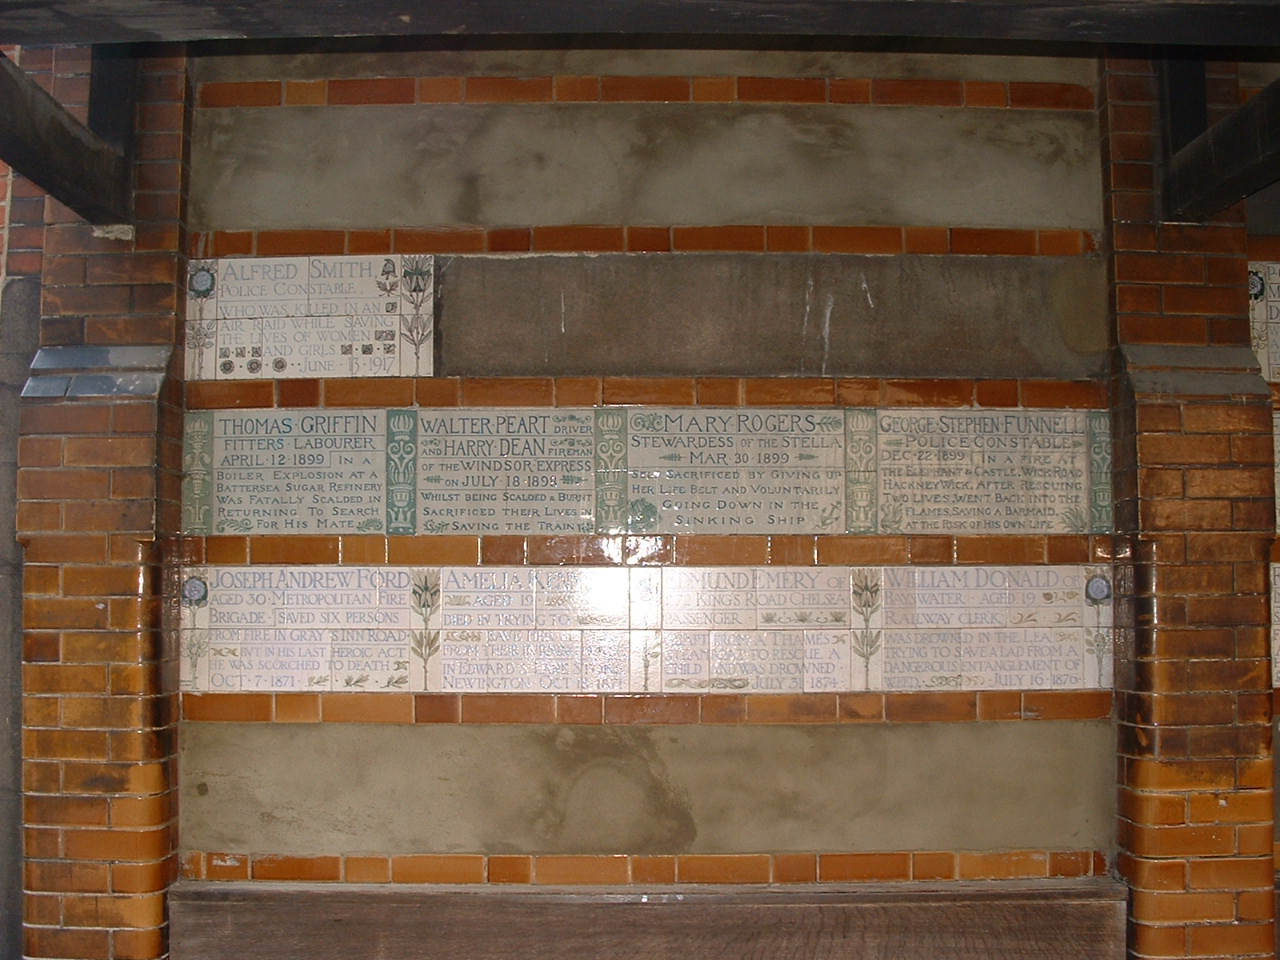 ALFRED SMITH,
POLICE CONSTABLE,
WHO WAS KILLED IN AN
AIR RAID WHILE SAVING
THE LIVES OF WOMEN
AND GIRLS
JUNE · 13 · 1917
THOMAS GRIFFIN
FITTERS LABOURER
APRIL · 12 · 1899 IN A
BOILER EXPLOSION AT A
BATTERSEA SUGAR REFINERY
WAS FATALLY SCALDED IN
RETURNING TO SEARCH
FOR HIS MATE
WALTER PEART DRIVER
AND HARRY DEAN FIREMAN
OF THE WINDSOR EXPRESS
ON JULY · 18 · 1898
WHILST BEING SCALDED & BURNT
SACRIFICED THEIR LIVES IN
SAVING THE TRAIN
MARY ROGERS
STEWARDESS OF THE STELLA
MAR · 30 · 1899
SELF SACRIFICED BY GIVING UP
HER LIFE BELT AND VOLUNTARILY
GOING DOWN IN THE
SINKING SHIP
GEORGE STEPHEN FUNNELL
POLICE CONSTABLE
DEC · 22 · 1899 IN A FIRE AT
THE ELEPHANT & CASTLE, WICK ROAD
HACKNEY WICK, AFTER RESCUING
TWO LIVES, WENT BACK INTO THE
FLAMES, SAVING A BARMAID,
AT THE RISK OF HIS OWN LIFE
JOSEPH ANDREW FORD
AGED 30 · METROPOLITAN FIRE
BRIGADE · SAVED SIX PERSONS
FROM FIRE IN GRAY'S INN ROAD
BUT IN HIS LAST HEROIC ACT
HE WAS SCORCHED TO DEATH
OCT · 7 · 1871
AMELIA
AGED 19
DIED IN TRYING TO
SAVE
FROM THEIR
IN EDWARD'S LANE STOKE
NEWINGTON OCT 18 1871
EDMUND EMERY OF
KINGS ROAD CHELSEA
PASSENGER
THAMES
TO RESCUE A
CHILD AND WAS DROWNED
JULY 31 1874
WILLIAM DONALD OF
BAYSWATER AGED 19
RAILWAY CLERK
WAS DROWNED IN THE LEA
TRYING TO SAVE A LAD FROM A
DANGEROUS ENTANGLEMENT OF
WEED JULY 16 1876